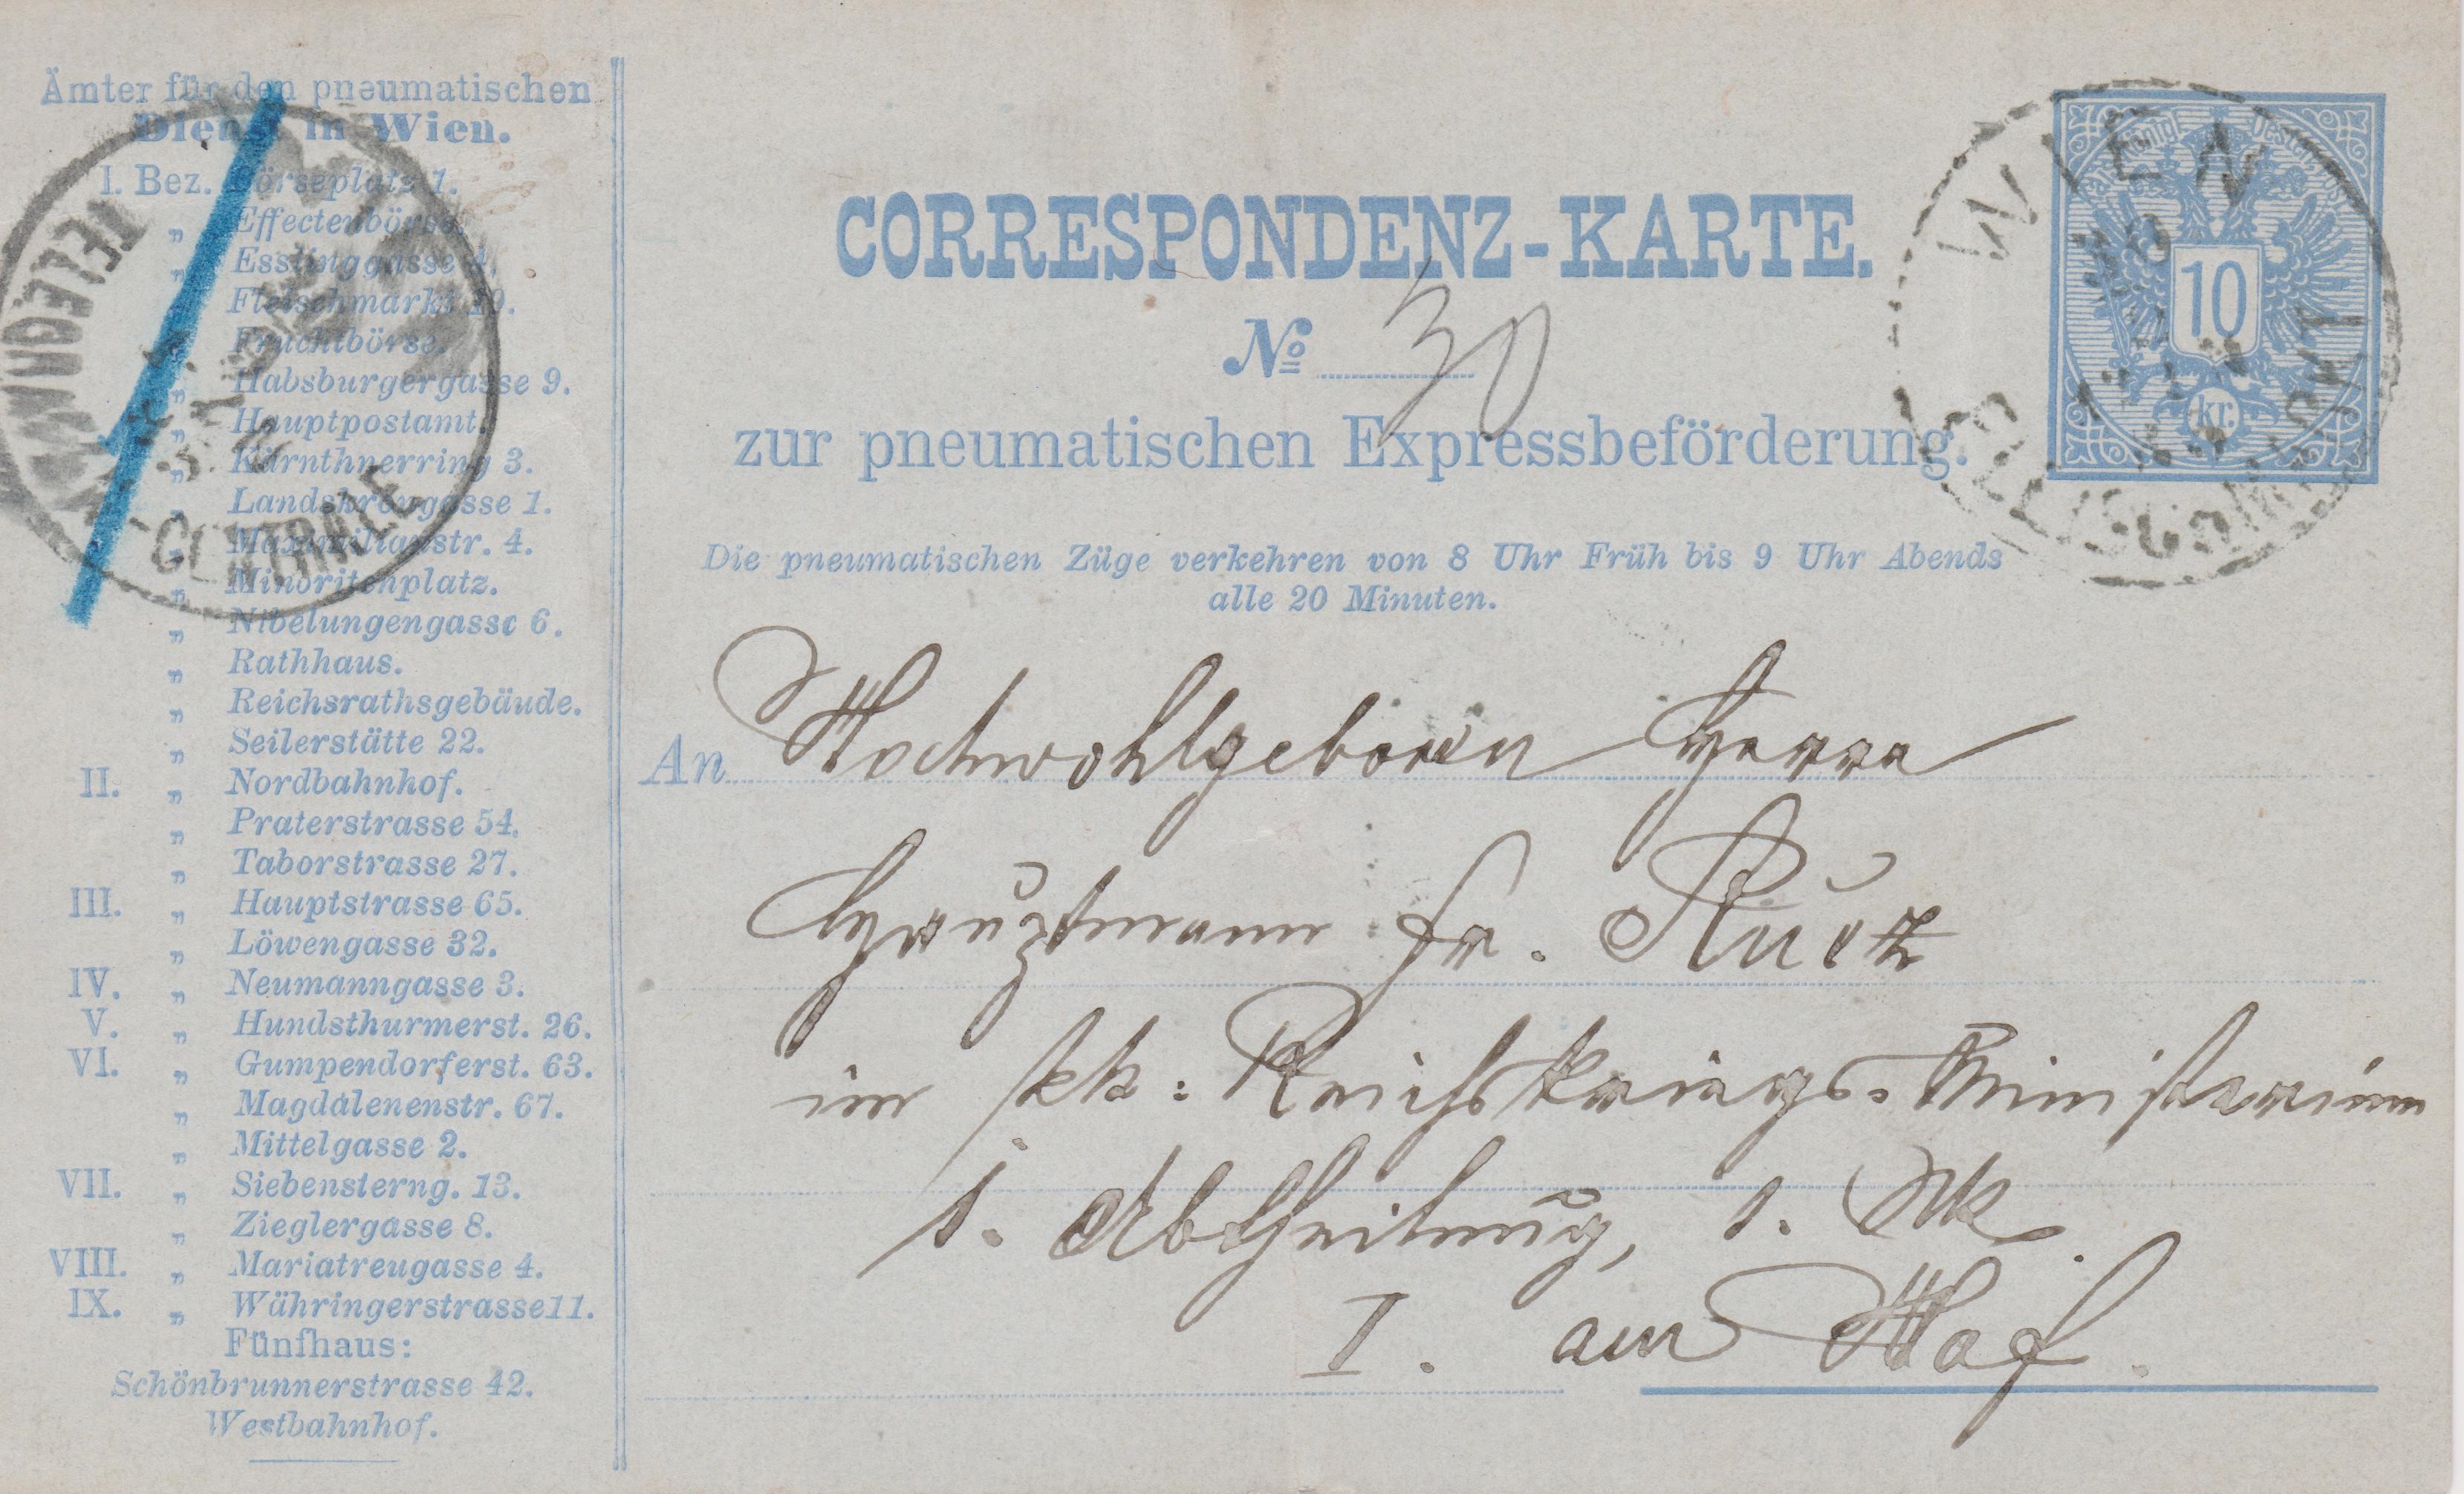 Ämter für den pneumatischen
Dienst in Wien.
I. Bez. Börseplatz 1.
„ Effectenbörse.
„ Esslinggasse 4.
„ Fleischmarkt 19.
„ Fruchtbörse.
„ Habsburgergasse 9.
„ Hauptpostamt.
„ Kärnthnerring 3.
„ Landskrongasse 1.
„ Maximilianstr. 4.
„ Minoritenplatz.
„ Nibelungengasse 6.
„ Rathhaus.
„ Reichsrathsgebäude.
„ Seilerstätte 22.
II. „ Nordbahnhof.
„ Praterstrasse 54.
„ Taborstrasse 27.
III. „ Hauptstrasse 65.
„ Löwengasse 32.
IV. „ Neumanngasse 3.
V. „ Hundsthurmerst. 26.
VI. „ Gumpendorferst. 63.
„ Magdalenenstr. 67.
„ Mittelgasse 2.
VII. „ Siebensterng. 13.
„ Zieglergasse 8.
VIII. „ Mariatreugasse 4.
IX. „ Währingerstrasse 11.
Fünfhaus:
Schönbrunnerstrasse 42.
Westbahnhof.
TELEGRAFEN-CENTRALE
CORRESPONDENZ-KARTE.
No 30
zur pneumatischen Expressbeförderung.
Die pneumatischen Züge verkehren von 8 Uhr Früh bis 9 Uhr Abends
alle 20 Minuten.
WIEN
10
kr.
An Hochwohlgeboren Herrn
Hauptmann Fr.
im kk: Reichskriegs-Ministerium
1. Abtheilung, 1.
I. am Hof.